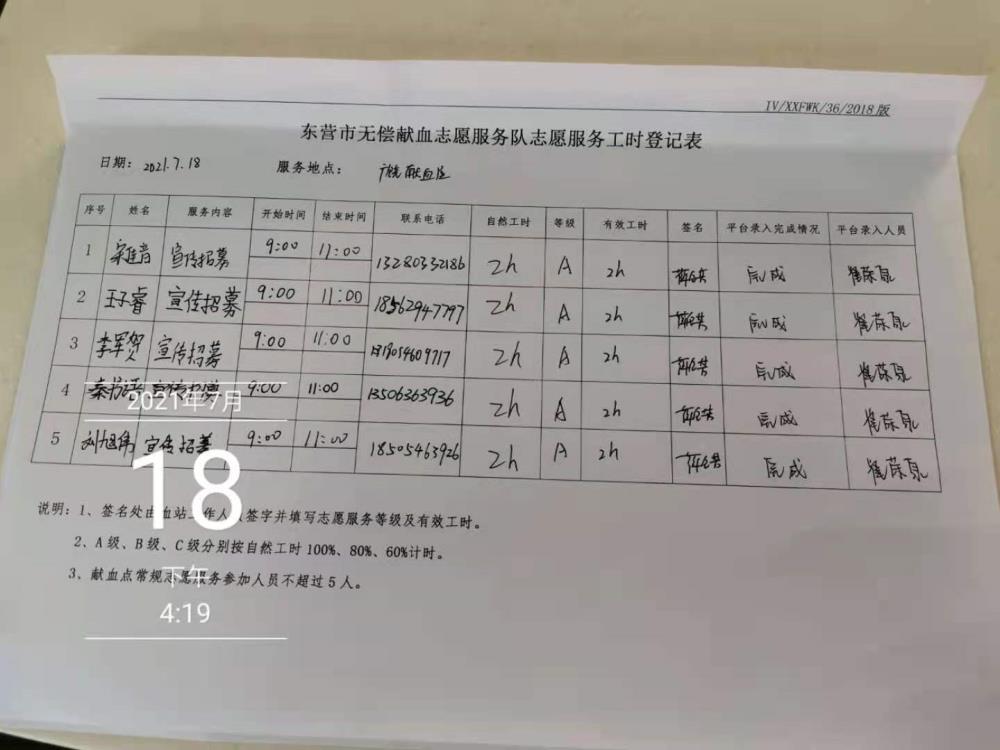 IV/XXFWK/36/2018版
东营市无偿献血志愿服务队志愿服务工时登记表
日期: 2021.7.18 服务地点: 献血
序号 姓名 服务内容 开始时间 结束时间 联系电话 自然工时 等级 有效工时 签名 平台录入完成情况 平台录入人员
1 宣传招募 9:00 11:00 13280332186 2h A 2h 完成
2 王子睿 宣传招募 9:00 11:00 18562947797 2h A 2h 完成
3 李军贺 宣传招募 9:00 11:00 2h A 2h 完成
4 宣传招募 9:00 11:00 13506363936 2h A 2h 完成
5 刘旭伟 宣传招募 9:00 11:00 18505463926 2h A 2h 完成
说明:1、签名处由血站工作人员签字并填写志愿服务等级及有效工时。
2、A级、B级、C级分别按自然工时100%、80%、60%计时。
3、献血点常规志愿服务参加人员不超过5人。
2021年7月
18
下午
4:19